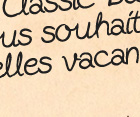 Classic
us souhait
elles vacan